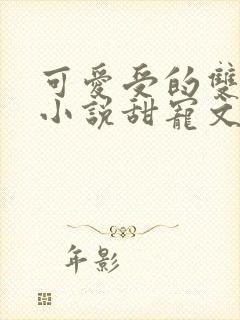 可愛受的雙
小說甜寵文
年影